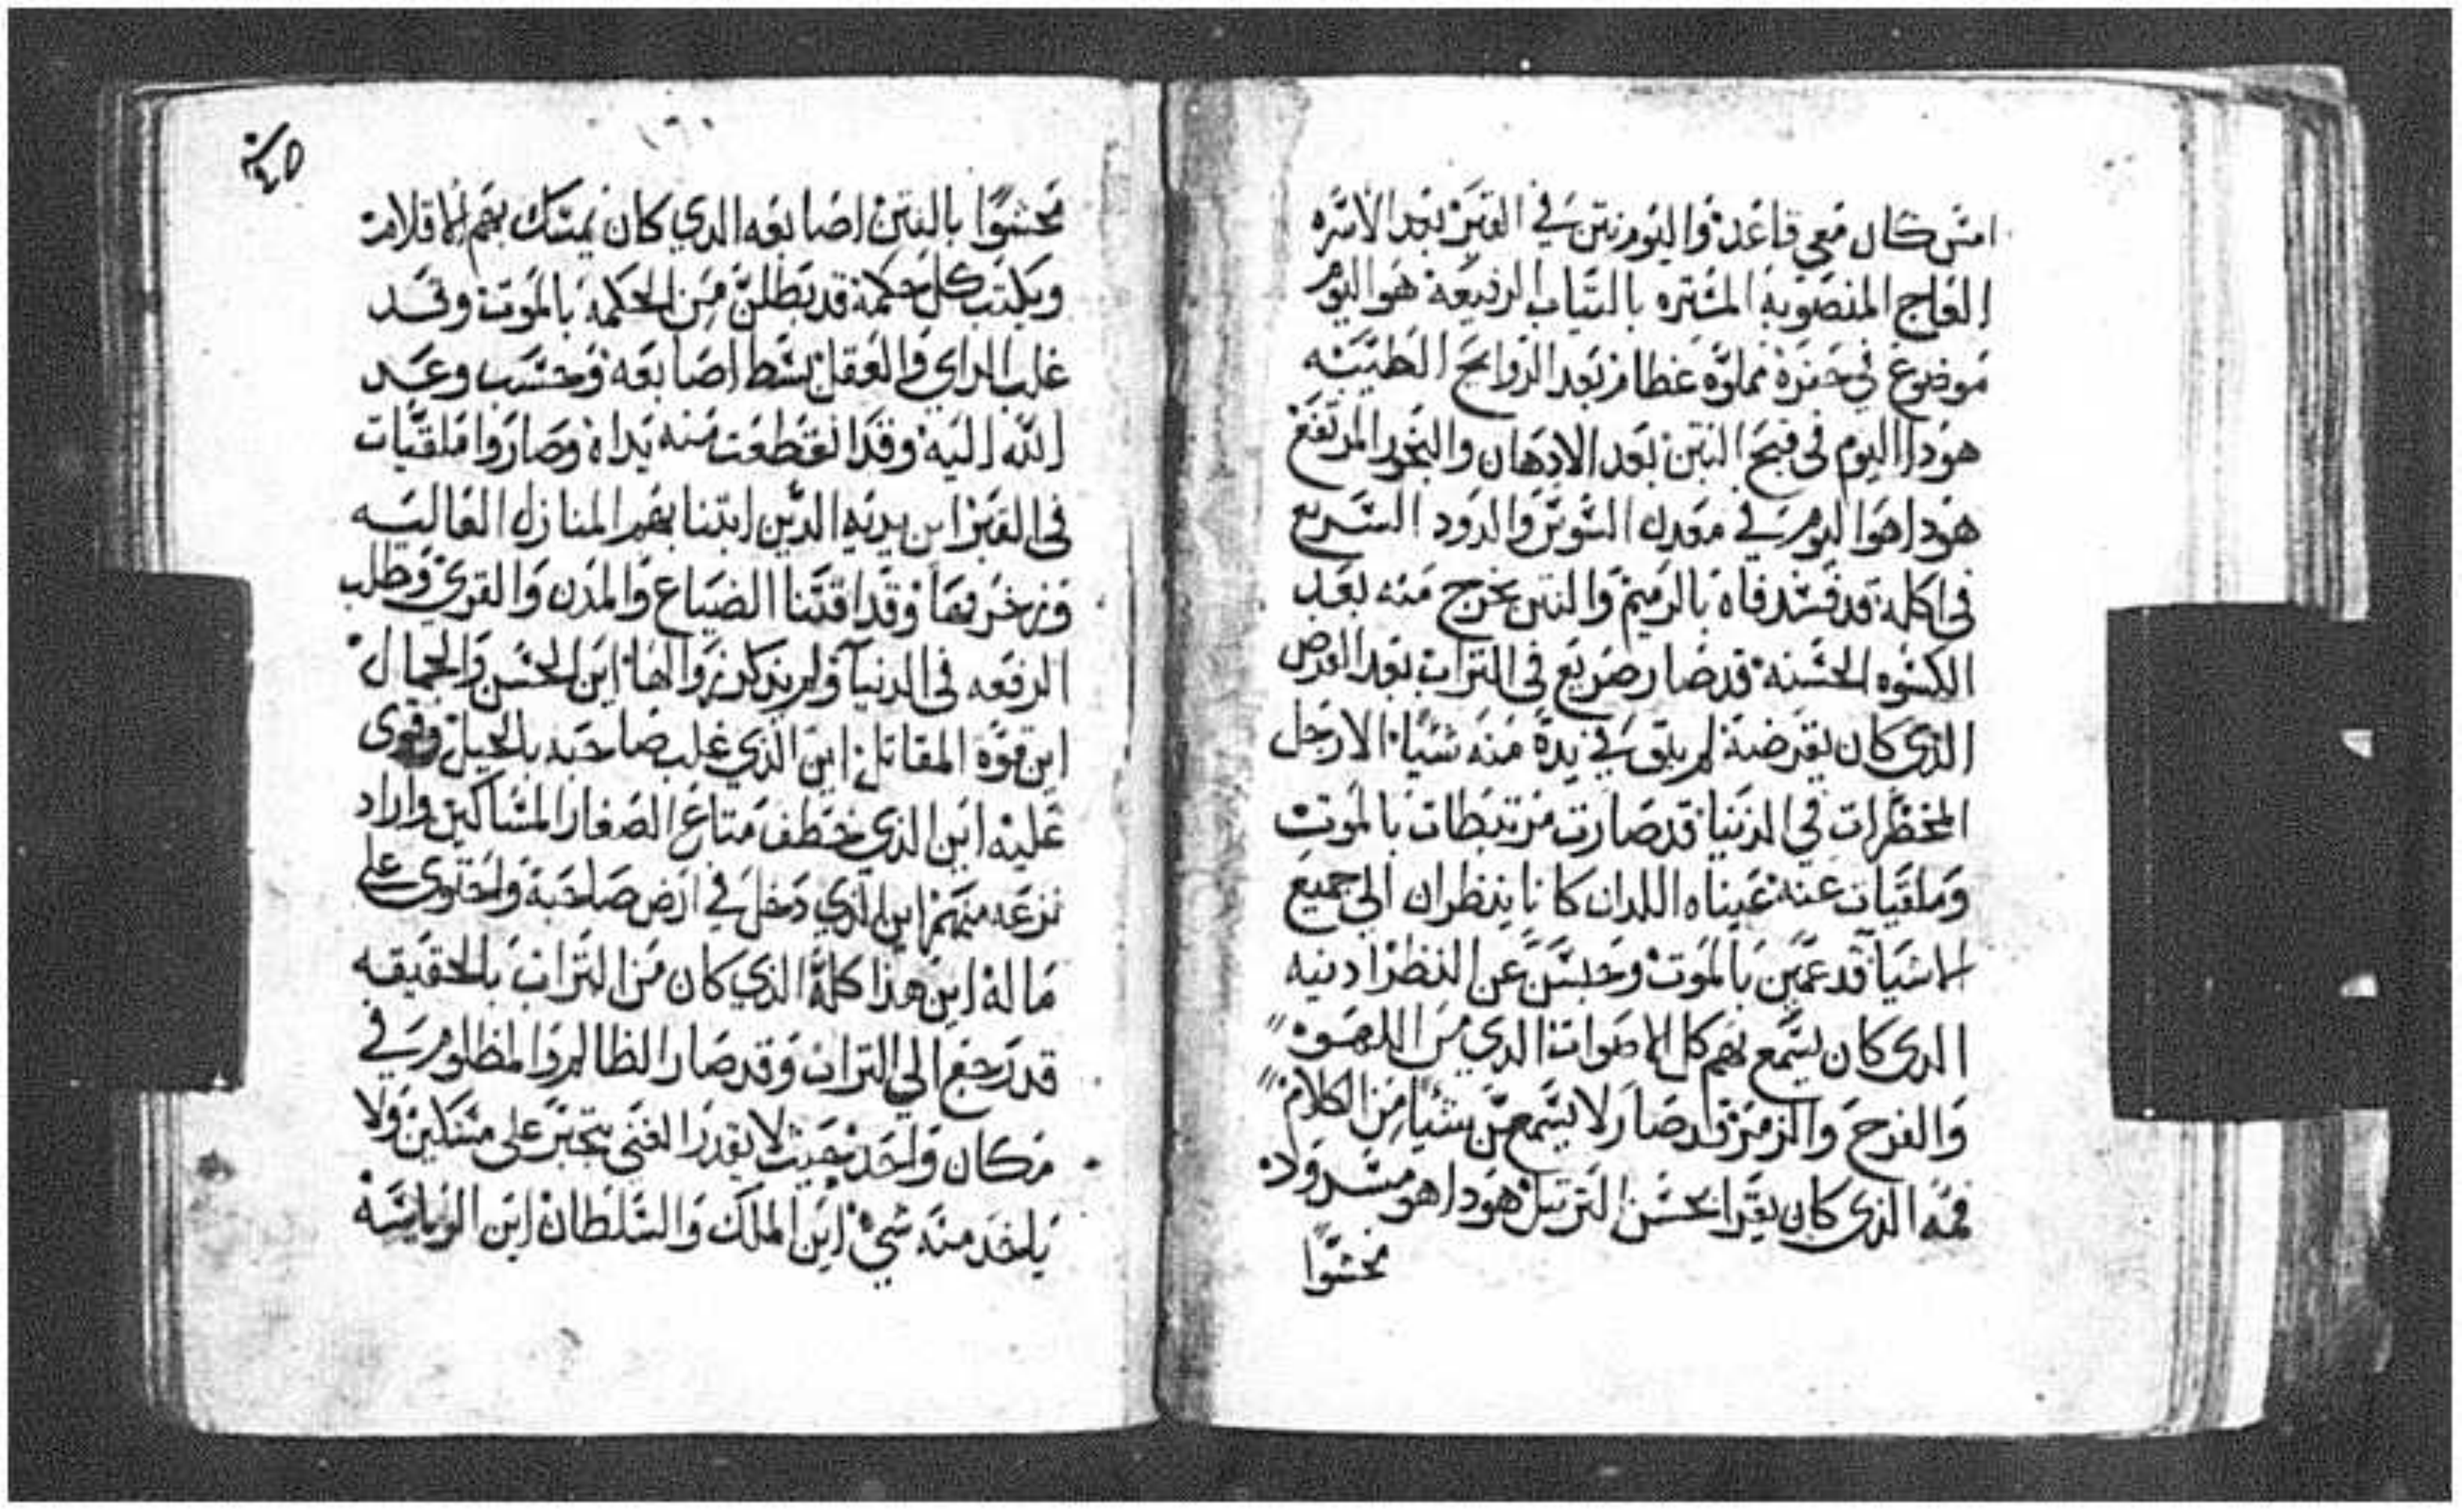 امس كان معي قاعد واليوم نتن في القبر بعد الاسره
العاج المنصوبه المستره بالتياب الرفيعه هو اليوم
موضوع في حفرة مملوه عظام بعد الروايح الطيبه
هودا اليوم في قبح النتن بعد الادهان والبخور المرتفع
هودا هوا اليوم في معدن السوس والدود السريع
في اكله قد فسد فاه بالرميم والنتن يخرج منه بعد
الكسوه الحسنه قد صار صريع في التراب بعد القرص
الذي كان يقرضه لم يبق في يده منه شيا الارجل
المخطرات في الدنيا قد صارت مرتبطات بالموت
وملقيات عنه عيناه اللدان كانا ينظران الي جميع
الاشيا قد عمين بالموت وحبسن عن النظر ادنيه
الدى كان يسمع بهم كل الاصوات الدي من اللهو
والفرح والزمر قد صار لا يسمعن شيا من الكلام
فمه الذى كان يقرا بحسن الترتيل هودا هو مسدود
محشوا
محشوا بالنتن اصابعه الدي كان يمسك بهم الاقلام
ويكتب كل حكمة قد بطلن من الحكمه بالموت وقد
غلب الراي والعقل بسط اصابعه وحسب وعد
الله اليه وقد انقطعت منه يداه وصاروا ملقيات
في القبر اين يديه الدين ابتنا بهم المنازل العاليه
وزخرفها وقد اقتنا الضياع والمدن والقري وطلب
الرفعه في الدنيا ولم يدكر زوالها اين الحسن والجمال
اين قوة المقاتل اين الذي غلب صاحبه بالحيل وقوى
عليه اين الذي خطف متاع الصغار المساكين واراد
نزعه منهم اين الذي دخل في ارض صاحبه واحتوى على
ماله اين هذا كله الذي كان من التراب بالحقيقه
قد رجع الي التراب وقد صار الظالم والمظلوم في
مكان واحد بحيث لا يقدر الغني يتجبر على مسكين ولا
ياخد منه شي اين الملك والسلطان اين الرياسه